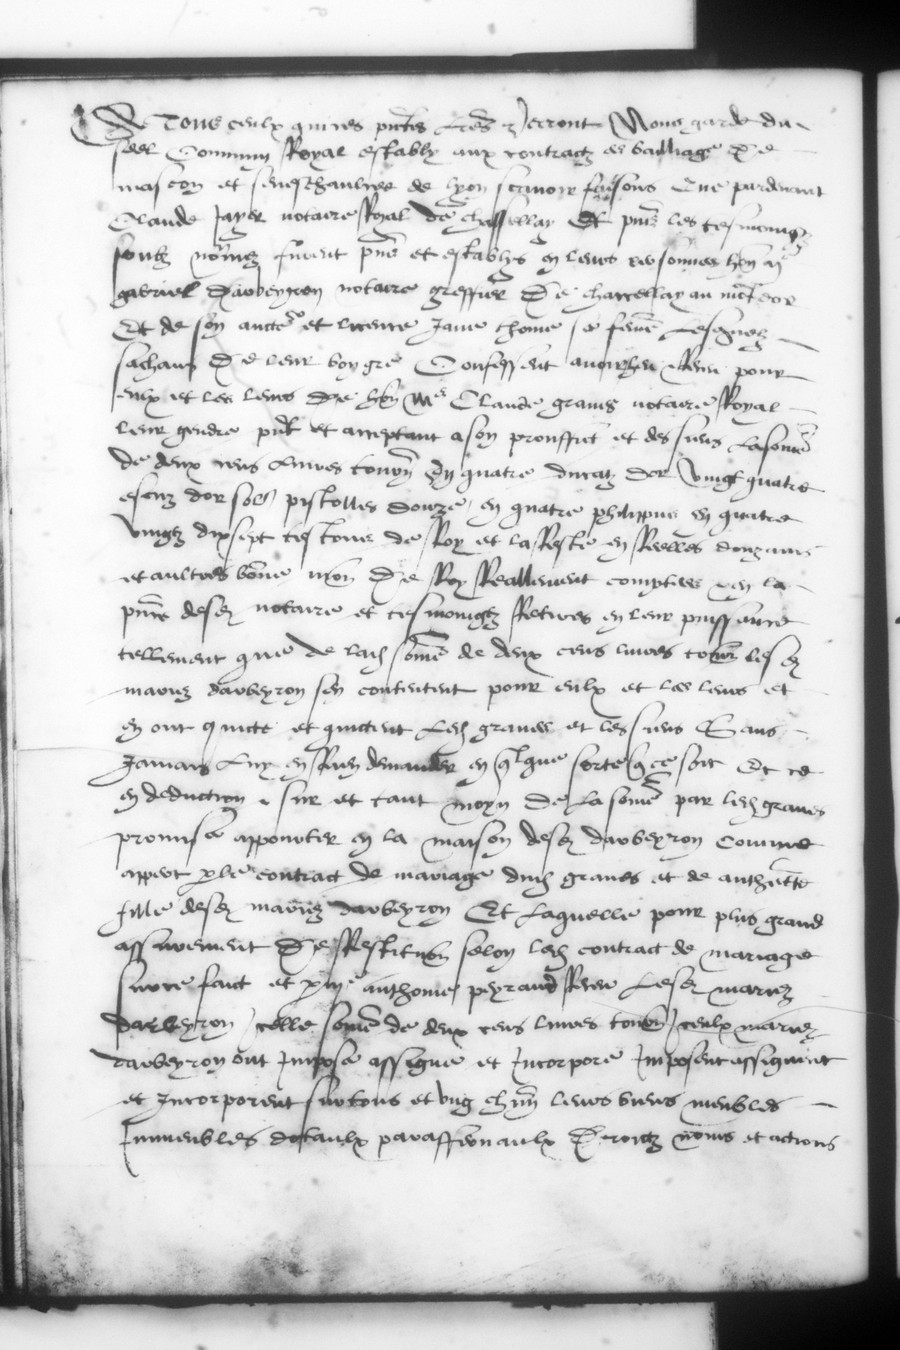 A Tous ceulx qui ces pntes lres verront Nous garde du
seel Commun Royal estably aux contractz es bailliage De
mascon et seneschaulcee de lyon scavoir faisons Que pardevant
Claude Jayer notaire Royal de chassellay Et pns les tesmoings
soubz nommez furent pns et establys en leurs personnes hon
gabriel Daubeyron notaire greffier De chassellay
Et de son aucte et licence Jane thome sa feme Lesquelz
sachans De leur bon gre Confessent avoir heu Receu pour
eulx et les leurs De hon Me Claude graves notaire Royal
leur gendre pnt et acceptant a son prouffict et des siens La some
de deux cens Livres tourn En quatre ducatz dor Vingt quatre
escuz dor sol pistolles douze en quatre philippus en quatre
vingtz dix sept testons de Roy et la Reste en Realles douzains
et aultres bone mon De Roy Reallement comptees en la
pnce desd notaire et tesmoingz Retirees en leur puissance
tellement que De lad some de deux cens livres tourn lesd
mariez daubeyron sen contentent pour eulx et les leurs et
en ont quicte et quictent Led graves et les siens Sans
Jamais Luy en Rien demander en qlque sorte que ce soit Et ce
en deduction sur et tant moyn De La some par led graves
promise apporter en la maison desd daubeyron Comme
appert p le contract de mariage dud graves et de anthtte
fille desd mariez daubeyron Et Laquelle pour plus grand
asseurement De Restitution selon led contract de mariage
sur ce faict et p me anthoine peyraud Receu Lesd mariez
daubeyron Icelle some de deux cens livres tourn Iceulx mariez
daubeyron ont Impose assigne et Incorpore Imposent assignent
et Incorporent sur tous et ung chun leurs biens meubles
Immeubles dotaulx paraffernaulx Droictz noms et actions